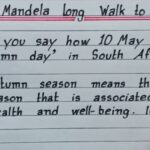 Mandela Long Walk to
you say how 10 May
day' in South Af
tumn season means th
ason that is associate
ealth and well-being. I